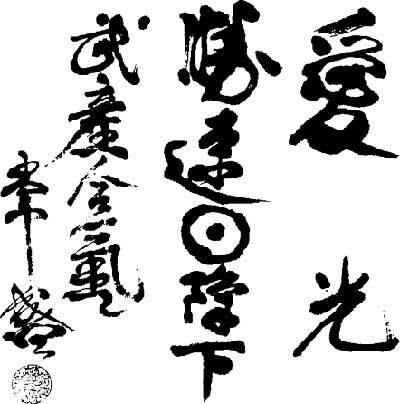 愛光
勝速⊙降下
武産合氣
常盛